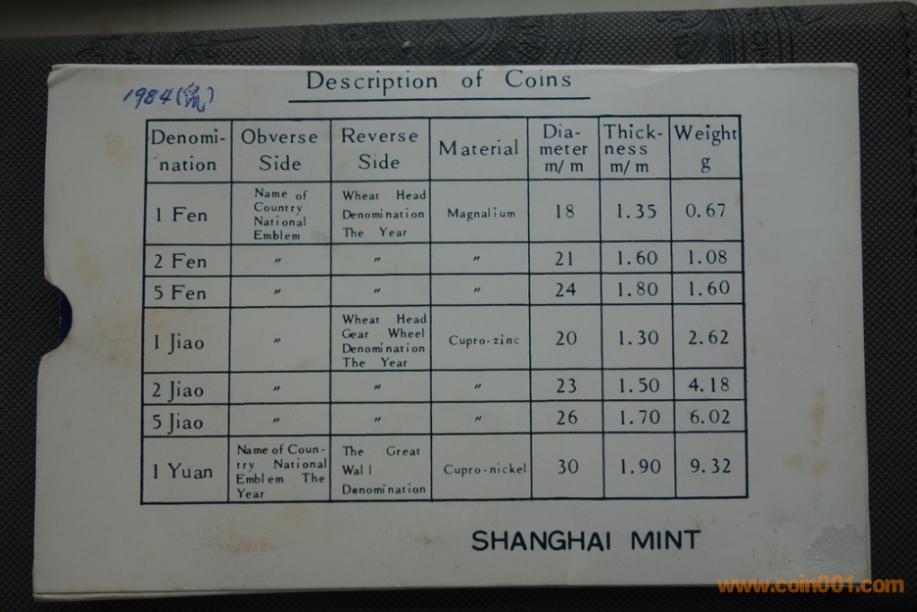 1984(鼠)
Description of Coins
Denomi-
nation
Obverse
Side
Reverse
Side
Material
Dia-
meter
m/m
Thick-
ness
m/m
Weight
g
1 Fen
Name of
Country
National
Emblem
Wheat Head
Denomination
The Year
Magnalium
18
1.35
0.67
2 Fen
〃
〃
〃
21
1.60
1.08
5 Fen
〃
〃
〃
24
1.80
1.60
1 Jiao
〃
Wheat Head
Gear Wheel
Denomination
The Year
Cupro-zinc
20
1.30
2.62
2 Jiao
〃
〃
〃
23
1.50
4.18
5 Jiao
〃
〃
〃
26
1.70
6.02
1 Yuan
Name of Coun-
try National
Emblem The
Year
The Great
Wall
Denomination
Cupro-nickel
30
1.90
9.32
SHANGHAI MINT
www.coin001.com